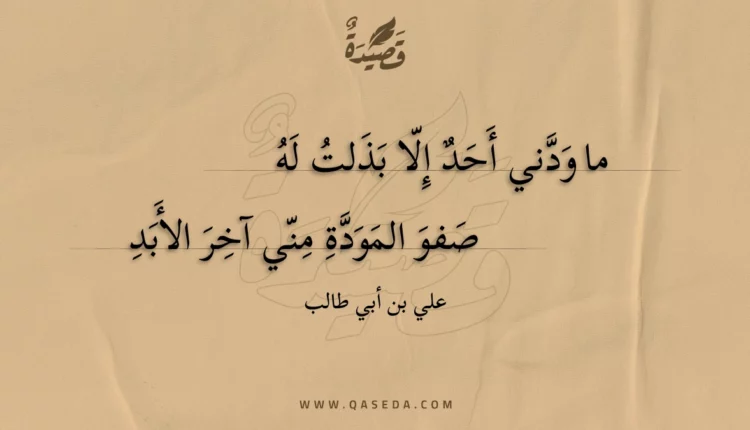 قَصِيْدَةٌ
ما وَدَّني أَحَدٌ إِلّا بَذَلتُ لَهُ
صَفوَ المَوَدَّةِ مِنّي آخِرَ الأَبَدِ
علي بن أبي طالب
WWW.QASEDA.COM